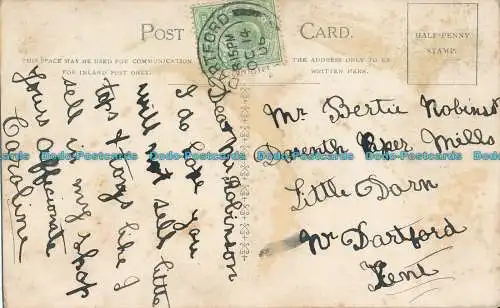 POST CARD.
THIS SPACE MAY BE USED FOR COMMUNICATION
FOR INLAND POST ONLY.
THE ADDRESS ONLY TO BE
WRITTEN HERE.
HALF-PENNY
STAMP.
DARTFORD
OC 14
Dear Mr Robinson
I do like you
will not sell little
tops & toys like I
sell in my shop
Yours affecionate
Caroline
Mr Bertie Robinson
Darenth Paper Mills
Little Darn
Nr Dartford
Kent
Dodo-Postcards Dodo-Postcards Dodo-Postcards Dodo-Postcards